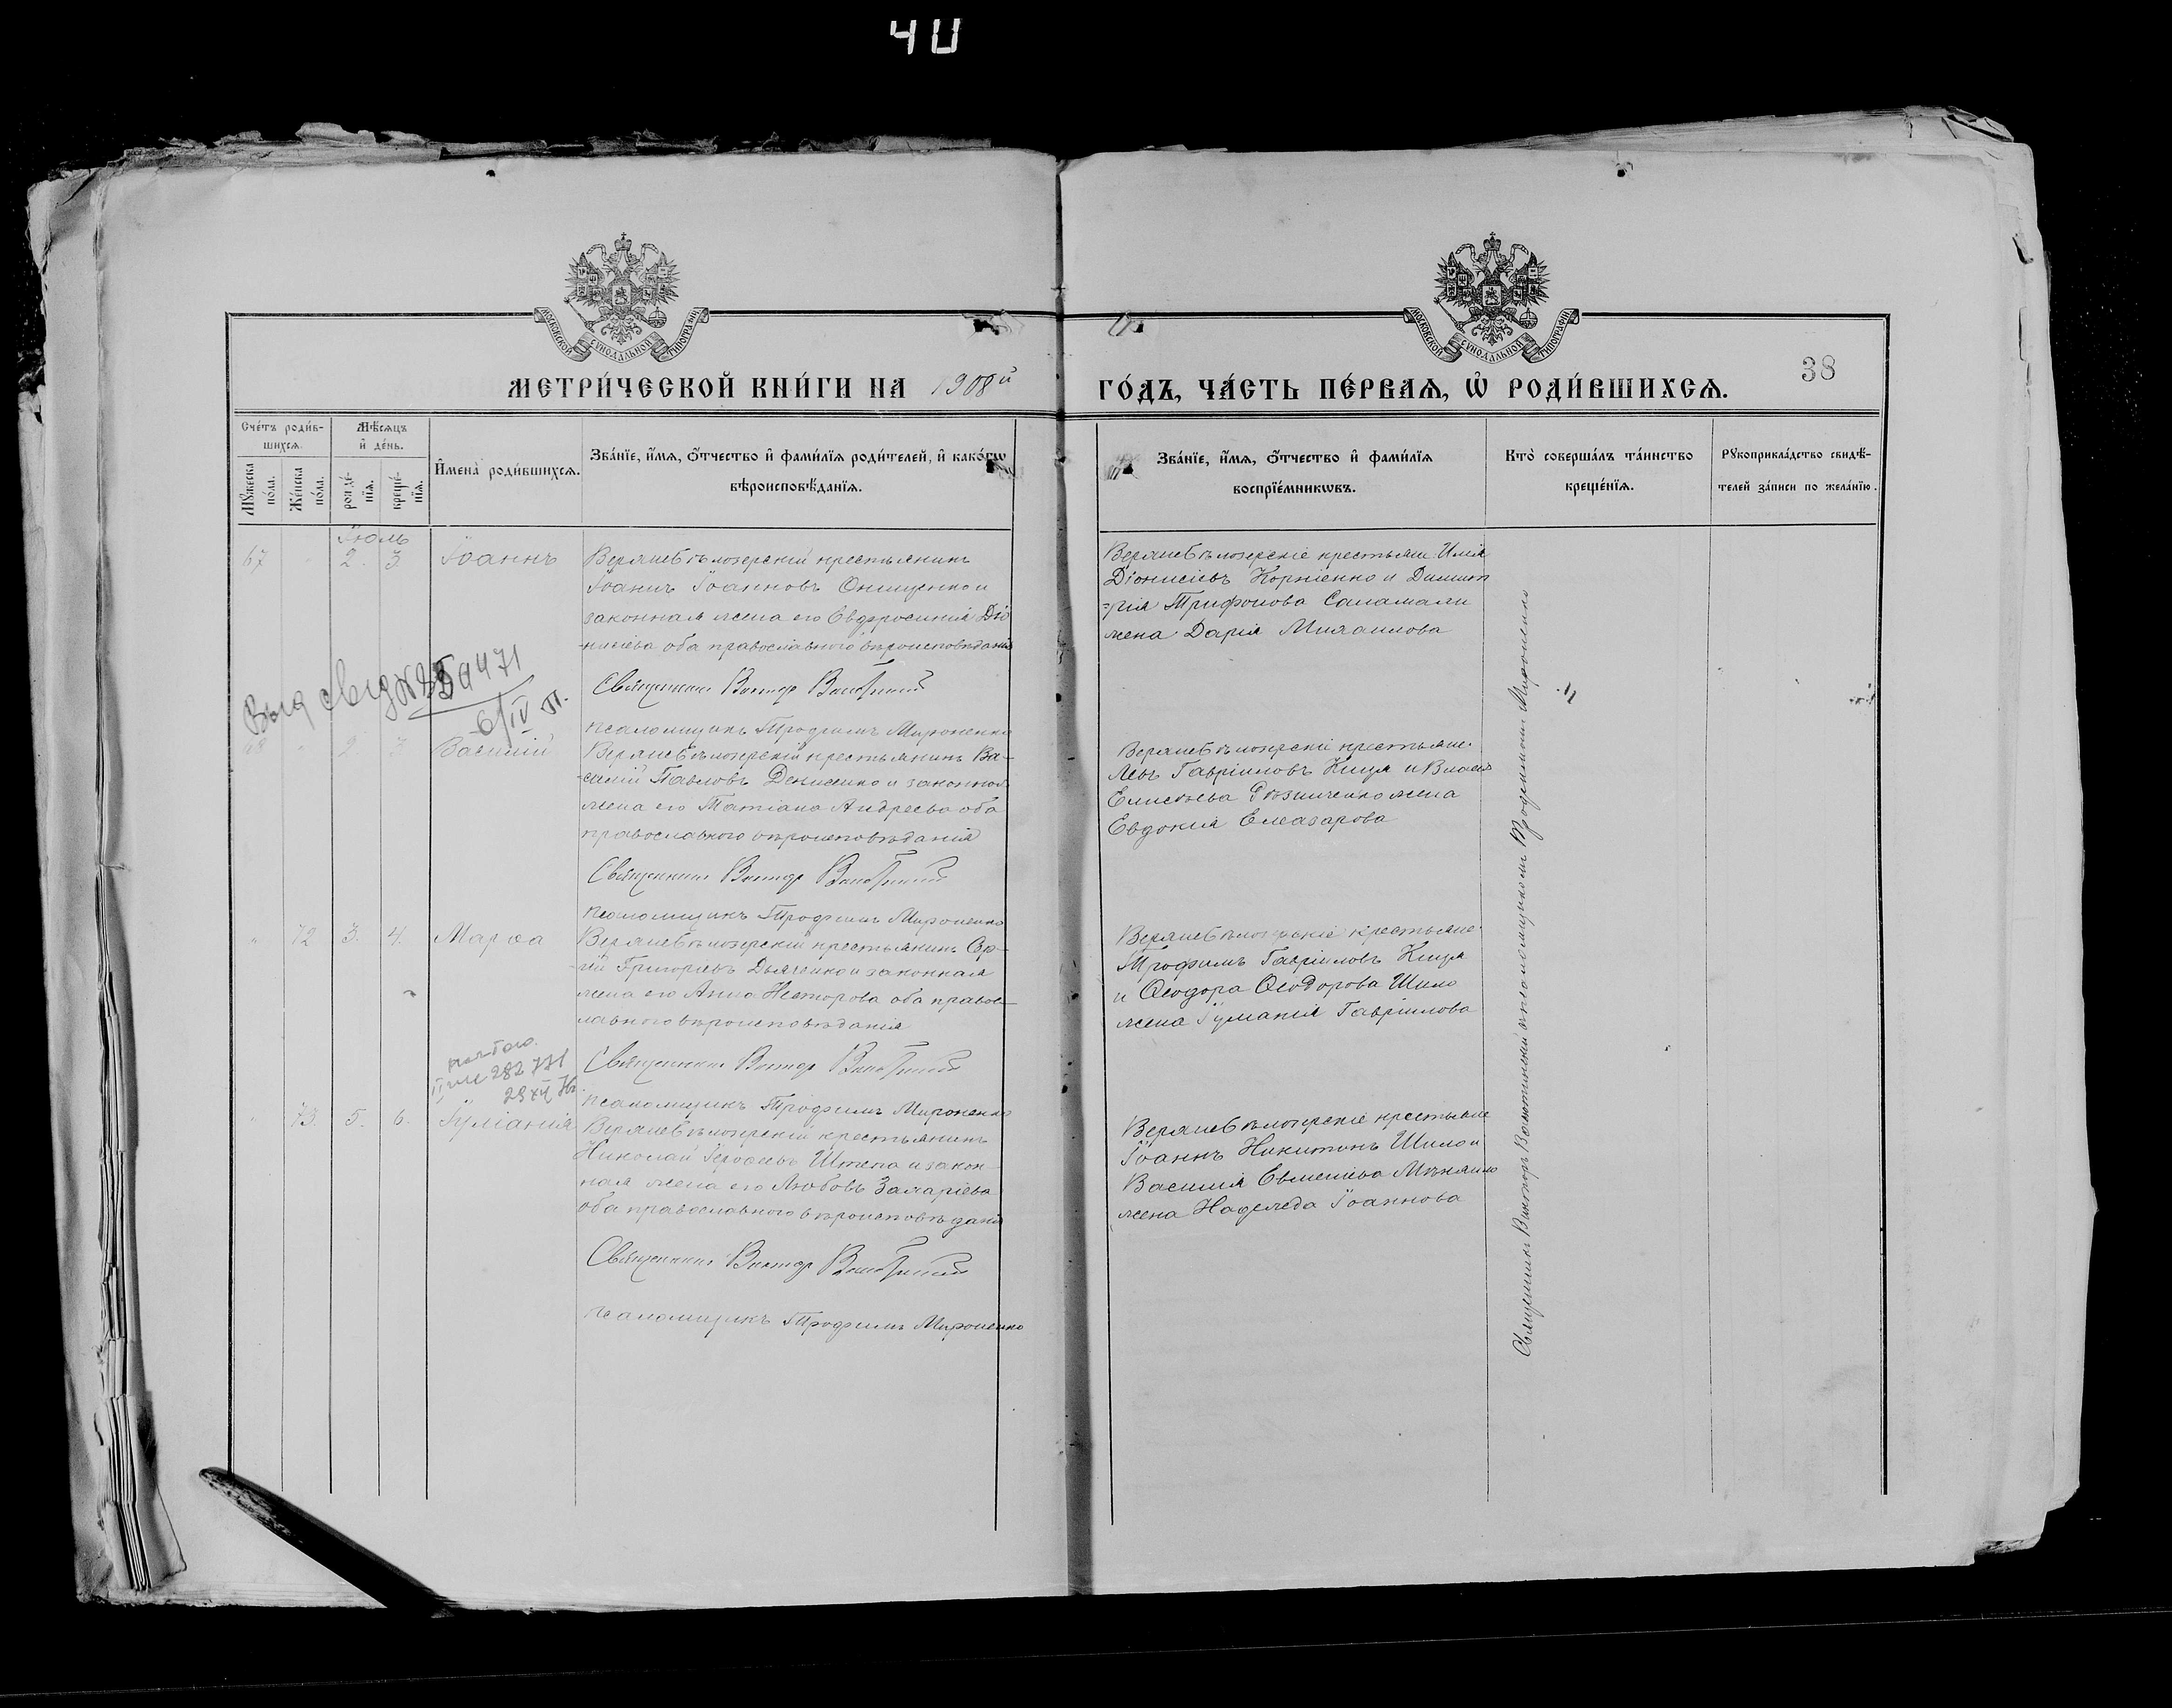 40
МОСКОВСКОЙ СѴНОДАЛЬНОЙ ТИПОГРАФІИ
МОСКОВСКОЙ СѴНОДАЛЬНОЙ ТИПОГРАФІИ
МЕТРИ́ЧЕСКОЙ КНИ́ГИ НА 1908й
ГО́ДЪ, ЧА́СТЬ ПЕ́РВАѦ, Ѡ҆ РОДИ́ВШИХСѦ.
38
Сче́тъ роди́в-
шихсѧ
Мѣ́сѧцъ
и҆ де́нь.
Мꙋ́жеска по́ла.
Же́нска по́ла.
рожде́нїѧ.
креще́нїѧ.
И҆мена̀ роди́вшихсѧ.
Зва́нїе, и҆́мѧ, ѻ҆́тчество и҆ фами́лїѧ роди́телей, и҆ како́гѡ
вѣроисповѣ́данїѧ.
Зва́нїе, и҆́мѧ, ѻ҆́тчество и҆ фами́лїѧ
воспрїе́мникѡвъ.
Кто̀ соверша́лъ та́инство
креще́нїѧ.
Рꙋкоприкла́дство свидѣ́-
телей за́писи по жела́нїю.
Іюль
67 " 2. 3. Іоаннъ
Верхнебѣлозерскій крестьянинъ
Іоаннъ Іоанновъ Онищенко и
законная жена его Евфросинія Діо
нисіева оба православнаго вѣроисповѣданія
Священникъ Викторъ
псаломщикъ Трофимъ Мироненко
Верхнебѣлозерскіе крестьяне Илія
Діонисіевъ Корніенко и Димит
-рія Трифонова Саламахи
жена Дарія Михаилова
471
6/IV
68 " 2. 7. Василій
Верхнебѣлозерскій крестьянинъ Ва-
-силій Павловъ Денисенко и законная
жена его Татіана Андреева оба
православнаго вѣроисповѣданія
Священникъ Викторъ
псаломщикъ Трофимъ Мироненко
Верхнебѣлозерскіе крестьяне
Левъ Гавріиловъ Кища и Власія
Елисѣева Рѣзниченко жена
Евдокія Елеазарова
" 72 3. 4. Марѳа
Верхнебѣлозерскій крестьянинъ Сер-
-гій Григоріевъ Дьяченко и законная
жена его Анна Несторова оба правос-
лавнаго вѣроисповѣданія
Священникъ Викторъ
псаломщикъ Трофимъ Мироненко
Верхнебѣлозерскіе крестьяне
Трофимъ Гавріиловъ Кища
и Ѳеодора Ѳеодорова Шило
жена Іуліанія Гавріилова
282771
" 73. 5. 6. Іуліанія
Верхнебѣлозерскій крестьянинъ
Николай Іероѳеевъ Штепа и закон-
ная жена его Любовь Захаріева
оба православнаго вѣроисповѣданія
Священникъ Викторъ
псаломщикъ Трофимъ Мироненко
Верхнебѣлозерскіе крестьяне
Іоаннъ Никитинъ Шило и
Василія Евменіева
жена Надежда Іоаннова
Священникъ Викторъ псаломщикомъ Трофимомъ Мироненко